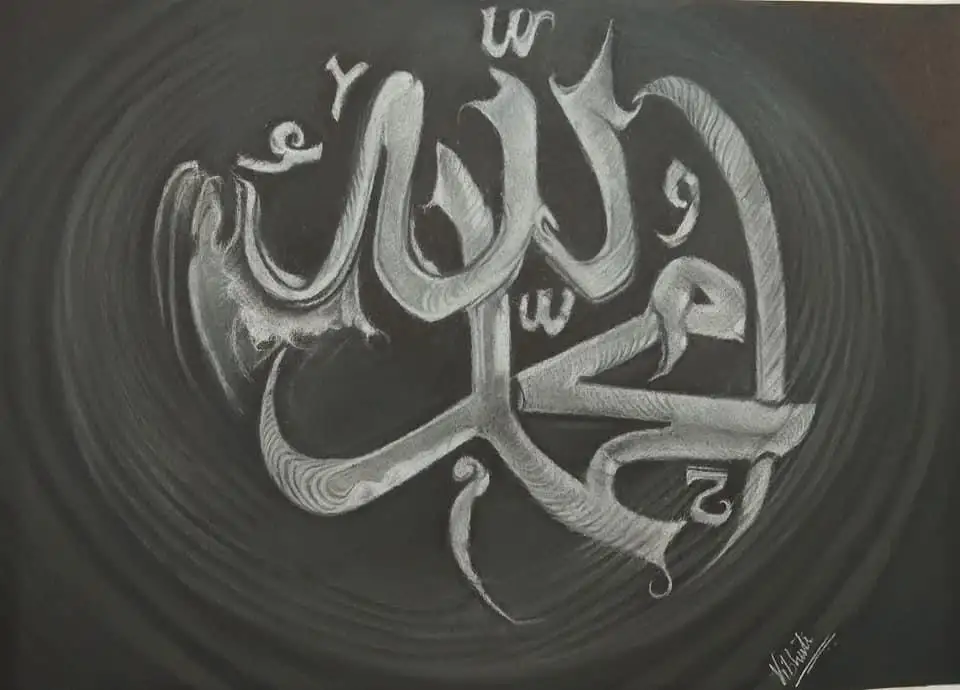 الله
محمد
Vibhuti